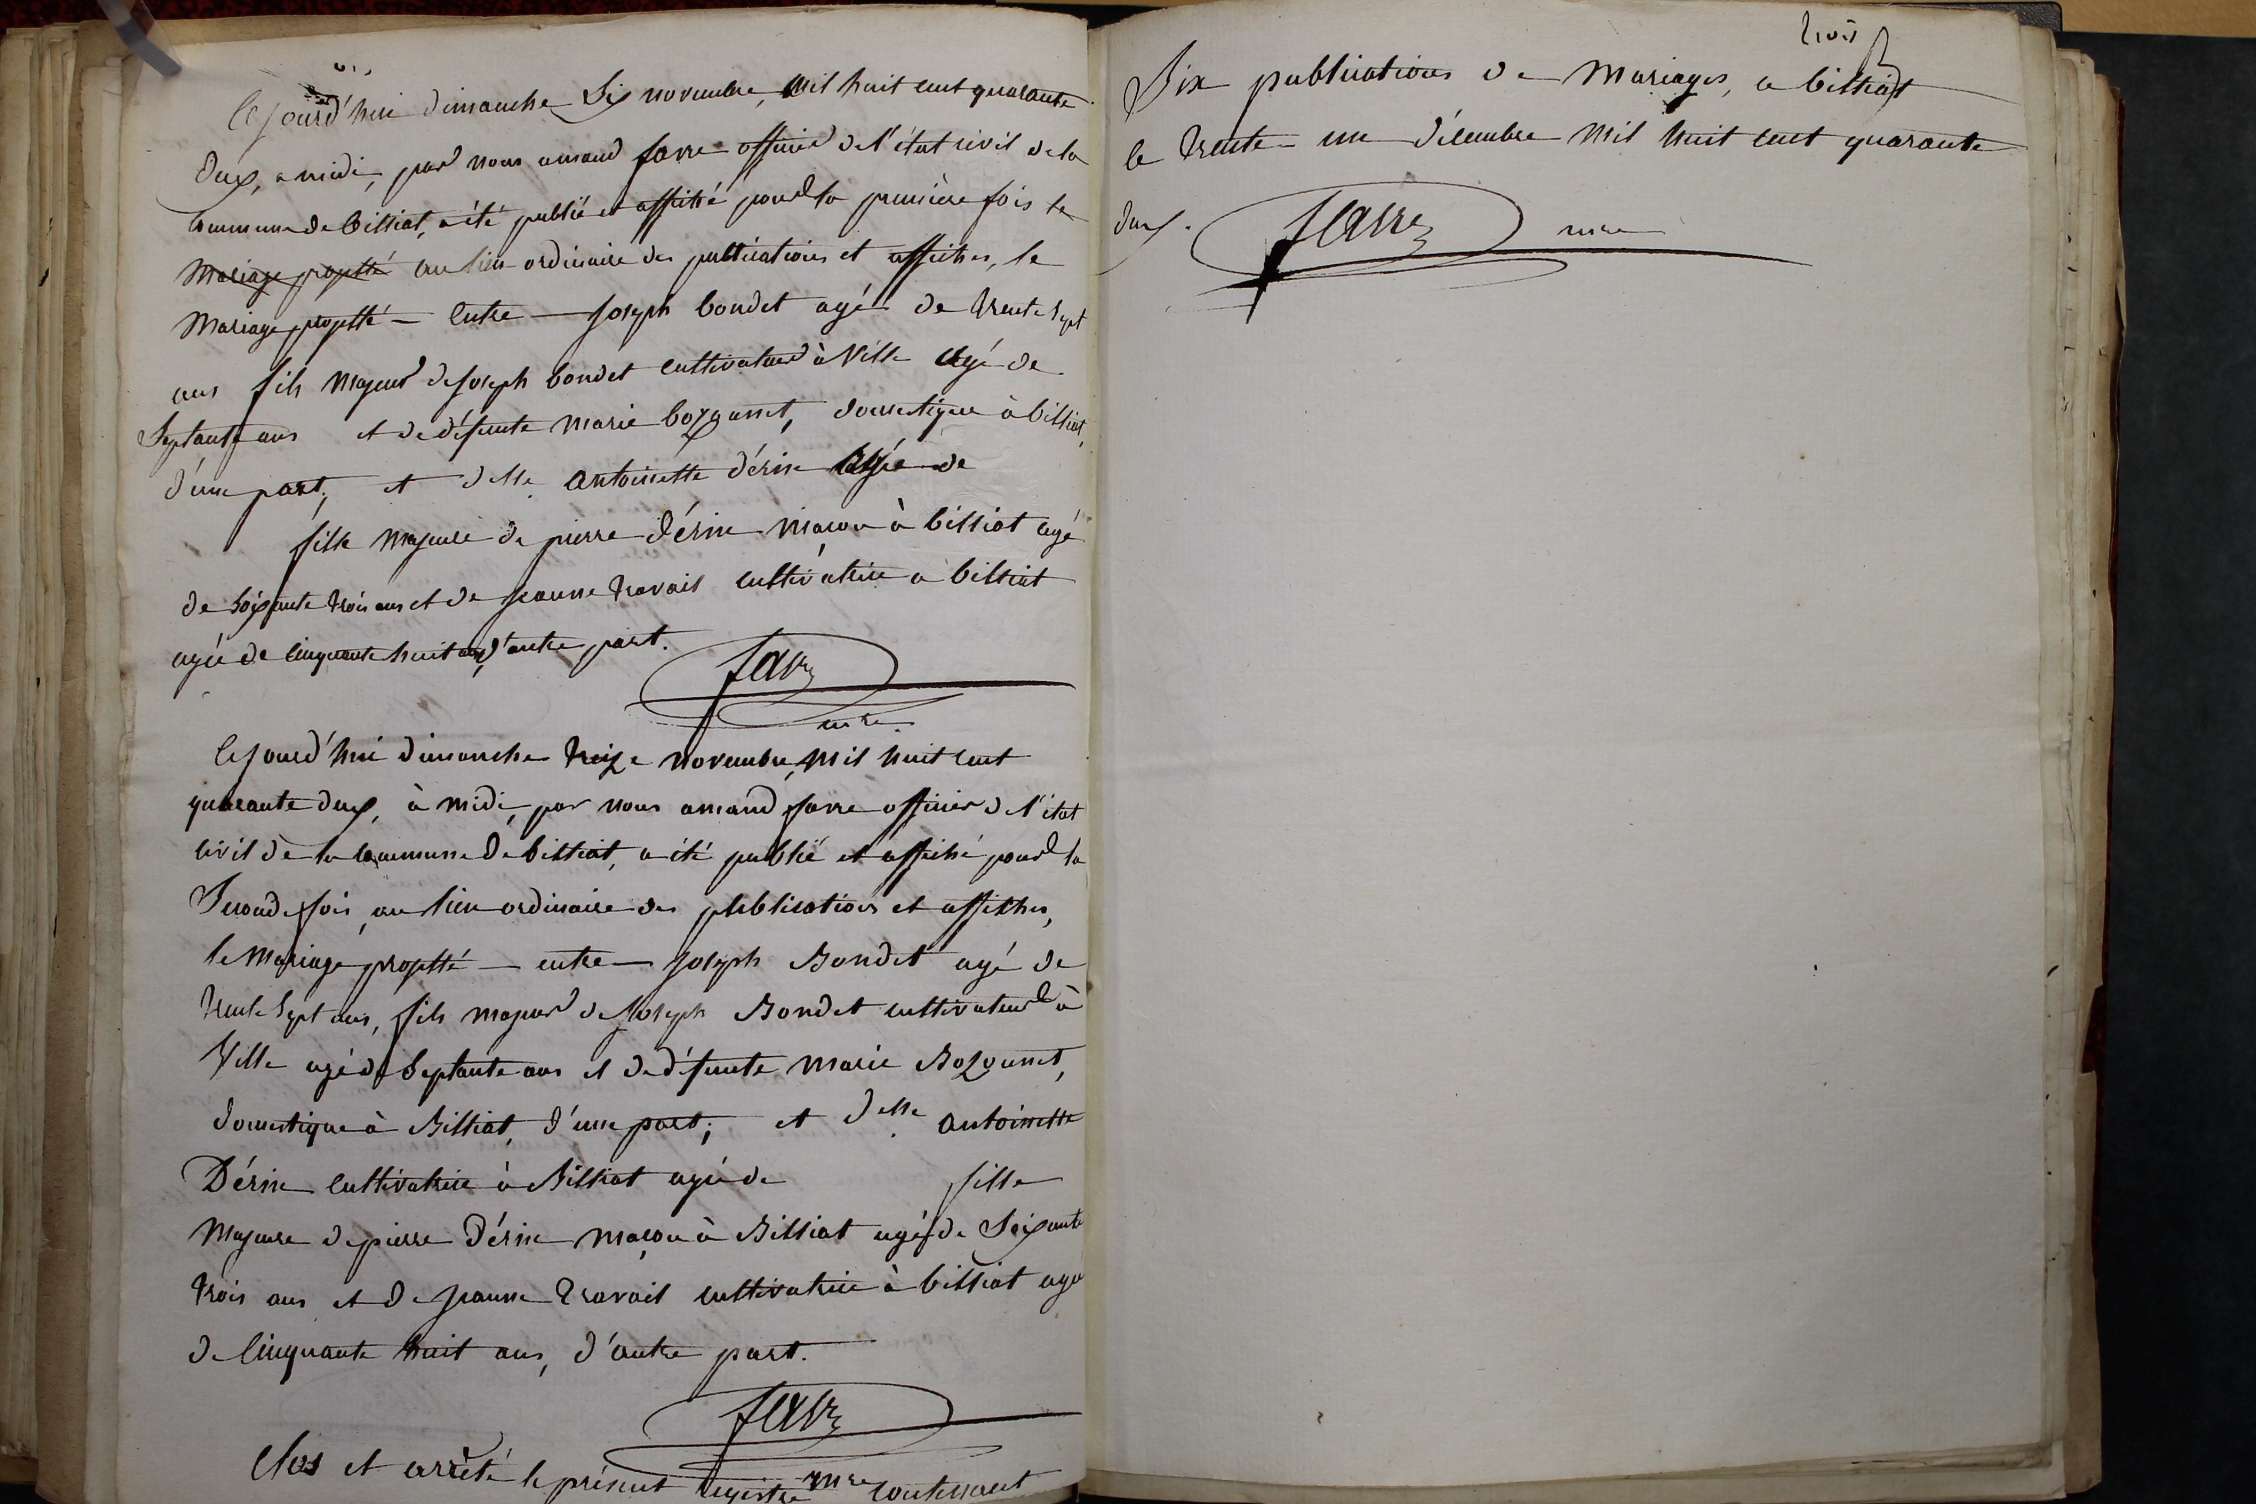 Cejourd'hui dimanche Six novembre, Mil huit cent quarante
deux, a midi, par nous amand favre officier de l'état civil de la
Commune de billiat, a été publié et affiché pour la première fois le
Mariage projetté au lieu ordinaire des publications et affiches, le
Mariage projetté — Entre — Joseph bondet agé de trente Sept
ans fils Majeur de Joseph bondet cultivateur à Ville Agé de
Septante ans et de défunte Marie bozonnet, domestique à billiat,
d'une part; et delle antoinette dérin Agée de
fille Majeure de pierre dérin Maçon à billiat agé
de Soixante trois ans et de jeanne travail cultivatrice a billiat
agée de Cinquante huit ans d'autre part.
favre
mre
Cejourd'hui dimanche treize novembre, Mil huit cent
quarante deux, à midi, par nous amand favre officier de l'état
civil de la Commune de billiat, a été publié et affiché pour la
Seconde fois, au lieu ordinaire des publications et affiches,
le Mariage projetté — entre — Joseph Bondet agé de
trente Sept ans, fils majeur de Joseph Bondet cultivateur à
Ville agé de Septante ans et de défunte Marie Bozonnet,
domestique à Billiat, d'une part; et delle antoinette
Dérin Cultivatrice à Billiat agée de fille
Majeure de pierre Dérin Maçon à Billiat agé de Soixante
trois ans et de jeanne travail cultivatrice à billiat agée
de Cinquante huit ans, d'autre part.
favre
mre
Clos et arrêté le présent registre contenant
trois
Six publications de Mariages, a billiat
le trente-un décembre Mil huit cent quarante
deux.
favre mre